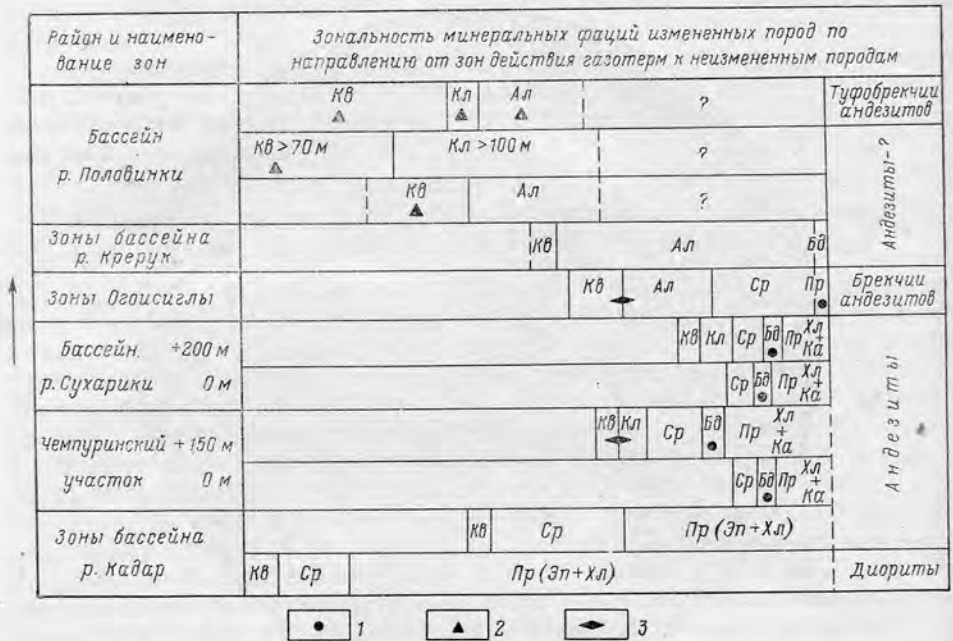 Район и наимено-
вание зон
Зональность минеральных фаций измененных пород по
направлению от зон действия газотерм к неизмененным породам
Бассейн
р. Половинки
Кв Кл Ал ?
Туфобрекчии
андезитов
Кв>70м Кл>100м ?
Кв Ал ?
Андезиты-?
Зоны бассейна
р. Крерук
Кв Ал Бд
Зоны Огоисиглы
Кв Ал Ср Пр
Брекчии
андезитов
Бассейн +200м
р. Сухарики 0м
Кв Кл Ср Бд Пр Хл
+
Ка
Ср Бд Пр Хл
+
Ка
Чемпуринский +150м
участок 0м
Кв Кл Ср Бд Пр Хл
+
Ка
Ср Бд Пр Хл
+
Ка
Андезиты
Зоны бассейна
р. Кадар
Кв Ср Пр(Эп+Хл)
Кв Ср Пр(Эп+Хл)
Диориты
1 2 3